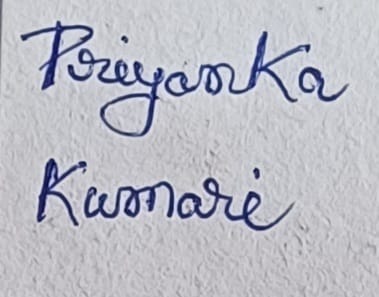 Priyanka
Kumari